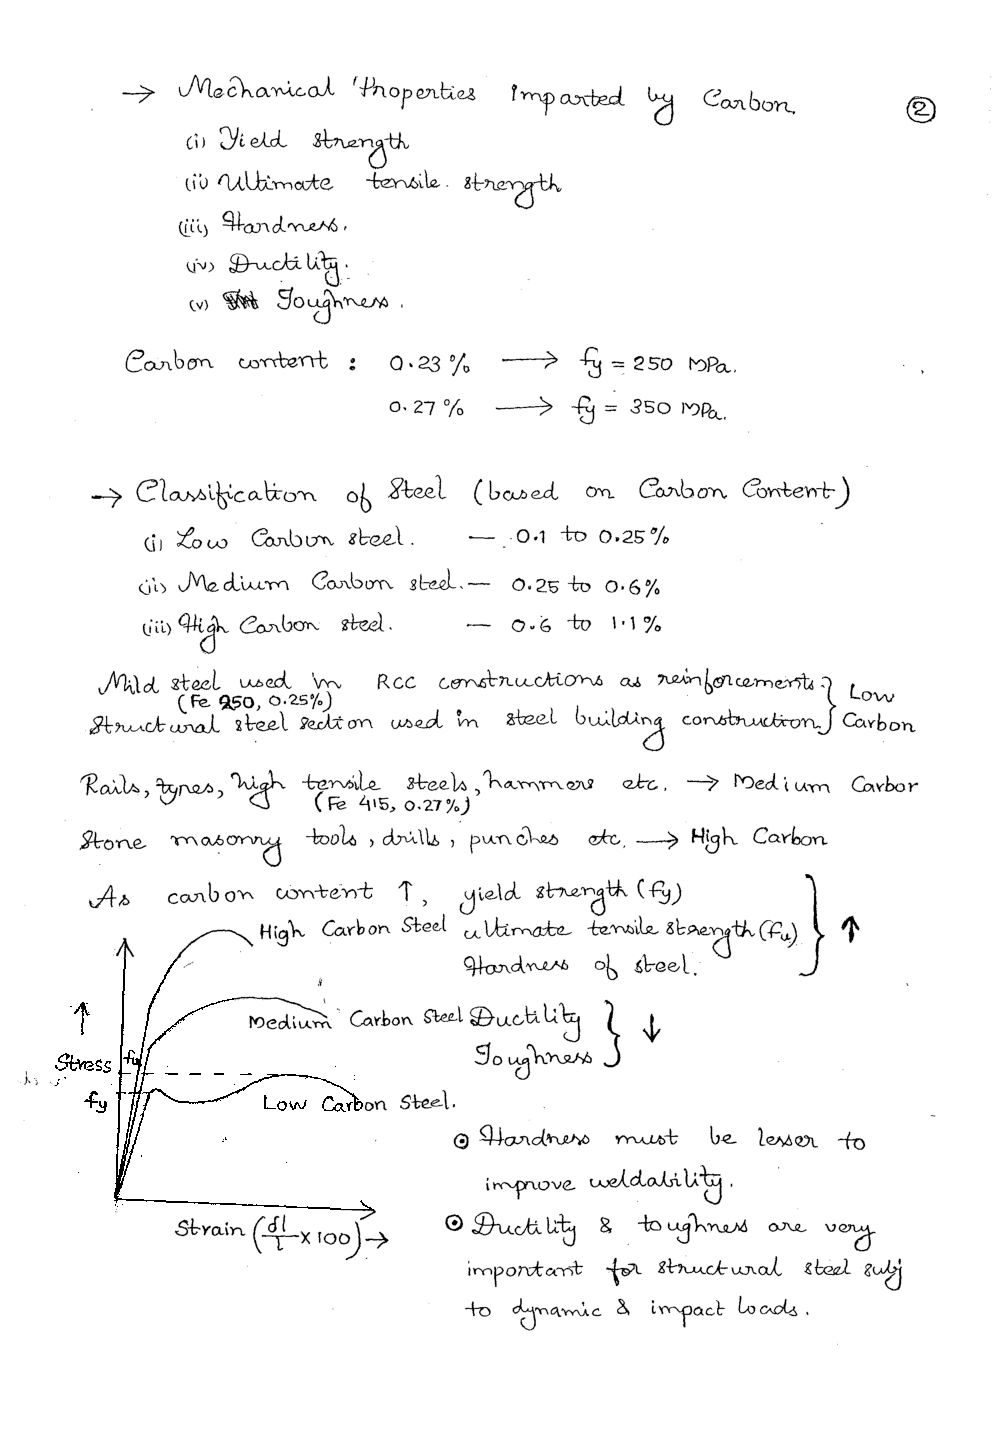 → Mechanical Properties Imparted by Carbon.
②
(i) Yield strength
(ii) Ultimate tensile. strength
(iii) Hardness.
(iv) Ductility.
(v) Toughness.
Carbon content : 0.23% ⟶ fy = 250 MPa.
0.27% ⟶ fy = 350 MPa.
→ Classification of Steel (based on Carbon Content)
(i) Low Carbon steel. — 0.1 to 0.25%
(ii) Medium Carbon steel. — 0.25 to 0.6%
(iii) High Carbon steel. — 0.6 to 1.1%
Mild steel used in RCC constructions as reinforcements } Low
(Fe 250, 0.25%)
Structural steel section used in steel building construction. } Carbon
Rails, tyres, high tensile steels, hammers etc. → Medium Carbon
(Fe 415, 0.27%)
Stone masonry tools, drills, punches etc. ⟶ High Carbon
As carbon content ↑, yield strength (fy)
High Carbon Steel
ultimate tensile strength (fu) } ↑
Hardness of steel.
Medium Carbon Steel
Ductility } ↓
Toughness
↑
Stress
fu
fy
Low Carbon Steel.
Strain (δl/l × 100) →
⊙ Hardness must be lesser to
improve weldability.
⊙ Ductility & toughness are very
important for structural steel subj
to dynamic & impact loads.